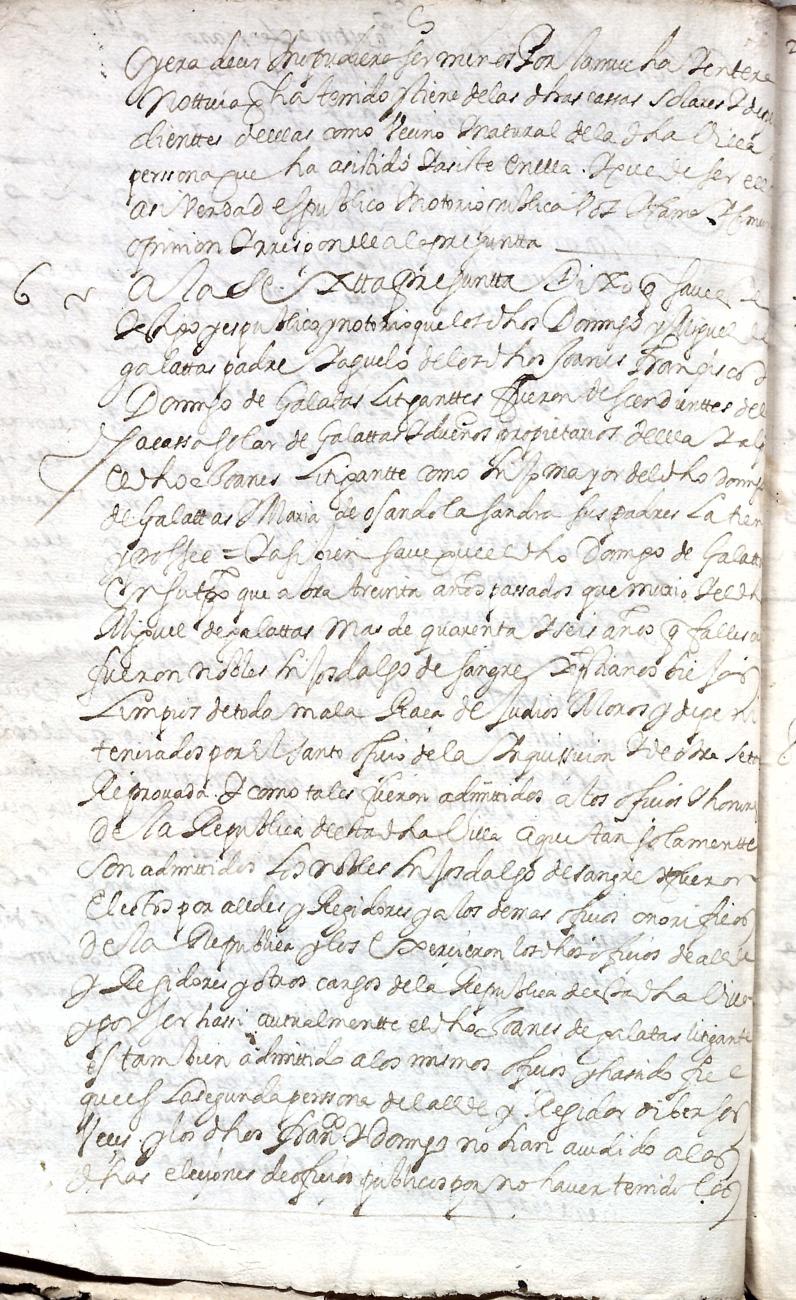 y era decir y no pudiera ser menos Por la mucha y entera
Notticia q ha tenido y tiene de las dhas cassas solares y
dienttes dellas como Vecino y natural de la dha Villa
perssona que ha asistido y asiste en ella. y que de ser ello
assi Verdad es publico y notorio publica Voz y fama y comun
opinion y rresponde a la pregunta
6 A la Sextta Pregunta Dixo q save el
testigo y es publico y notorio que los dhos Domingo y Miguel de
galattas padre y aguelo de los dhos Joanes Francisco y
Domingo de Galatas Litiganttes fueron descendienttes de
la cassa solar de Galattas y dueños propietarios della y al
el dho Joanes Litigantte como hijo mayor del dho Domingo
de Galattas y Maria de osando la sandra sus padres La tiene
y possee = y assi bien save que el dho Domingo de Galatta
que abra treinta años passados que murio y el dho
Miguel de galattas mas de quarenta y seis años q fallescio
fueron nobles hijosdalgo de sangre Xptianos Viejos
Limpios de toda mala Raza de Judios Moros y de peni
tenciados por El santo oficio de la Inquissicion y de otra setta
Reprovada. y como tales fueron admitidos a los oficios y honrras
de la Republica de esta dha Villa a que tan solamentte
son admitidos Los nobles hijosdalgo de sangre y fueron
Electos por alcdes y Regidores y a los demas oficios onorificos
de la Republica y los Exercieron los dhos oficios de alcde
y Regidores y otros cargos de la Republica de esta dha Villa
y por ser hassi autualmentte el dho Joanes de galatas litigante
es tambien admittido a los mismos oficios y ha sido fiel
que es La segunda perssona del alcde y Regidor diberssas
Veces y los dhos Franco y Domgo no han acudido a las
dhas eleciones de oficios publicos por no haver tenido las